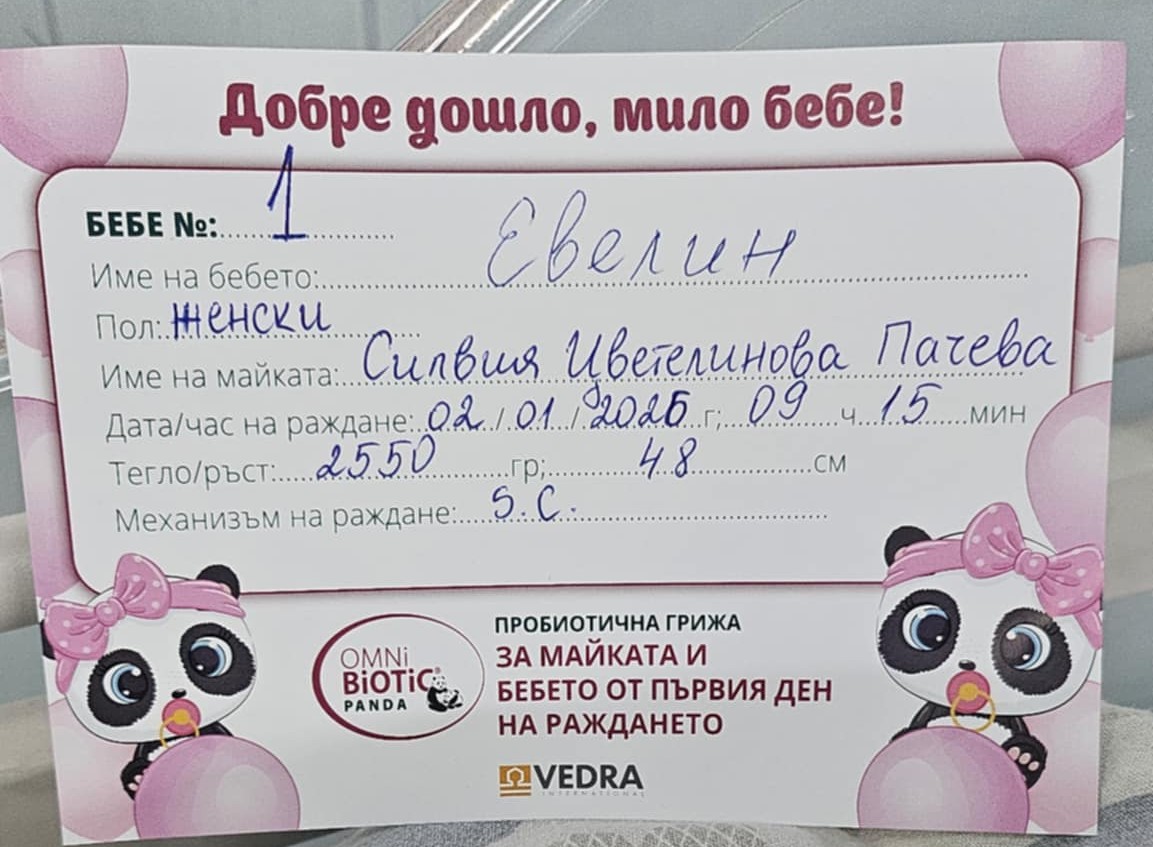 Добре дошло, мило бебе!
БЕБЕ №: 1
Име на бебето: Евелин
Пол: женски
Име на майката: Силвия Цветелинова Пачева
Дата/час на раждане: 02 / 01 / 2026 г; 09 ч 15 мин
Тегло/ръст: 2550 гр; 48 см
Механизъм на раждане: S.C.
OMNi
BiOTiC®
PANDA
ПРОБИОТИЧНА ГРИЖА
ЗА МАЙКАТА И
БЕБЕТО ОТ ПЪРВИЯ ДЕН
НА РАЖДАНЕТО
VEDRA
INTERNATIONAL